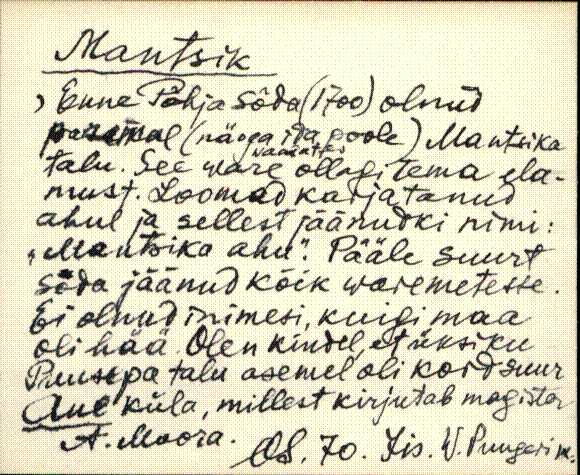 Mantsik
Enne Põhja sõda (1700) olnud
paremal (näoga ida poole) Mantsika
vaadates
talu. See ware ollagi tema ela-
must. Loomad karjatanud
ahul ja sellest jäänudki nimi:
"Mantsika ahu". Pääle suurt
sõda jäänud kõik waremetesse.
Ei olnud inimesi, kuigi maa
oli hää. Olen kindel, et üksiku
Puusepa talu asemel oli kord suur
Aue küla, millest kirjutab magister
A. Moora. OS. 70. Jis. W. Pungeri m.